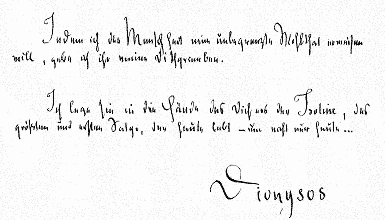 Indem ich der Menschheit eine unbegrenzte Wohlthat erweisen
will, gebe ich ihr meine Dithyramben.
Ich lege sie in die Hände des Dichters der Isoline, des
größten und ersten Satyr, der heute lebt – und nicht nur heute...
Dionysos